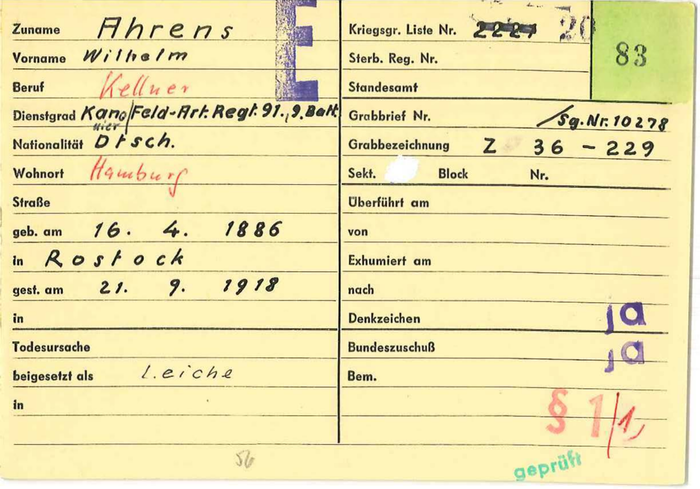 Zuname Ahrens
Vorname Wilhelm
Beruf Kellner
Dienstgrad Kano/Feld-Art.Regt.91.,9.Batt.
nier
Nationalität Dtsch.
Wohnort Hamburg
Straße
geb. am 16. 4. 1886
in Rostock
gest. am 21. 9. 1918
in
Todesursache
beigesetzt als Leiche
in
E
Kriegsgr. Liste Nr. 2221 20
83
Sterb. Reg. Nr.
Standesamt
Grabbrief Nr. /Sg.Nr.10278
Grabbezeichnung Z 36 - 229
Sekt. Block Nr.
Überführt am
von
Exhumiert am
nach
Denkzeichen ja
Bundeszuschuß ja
Bem.
§ 1/1,
56
geprüft